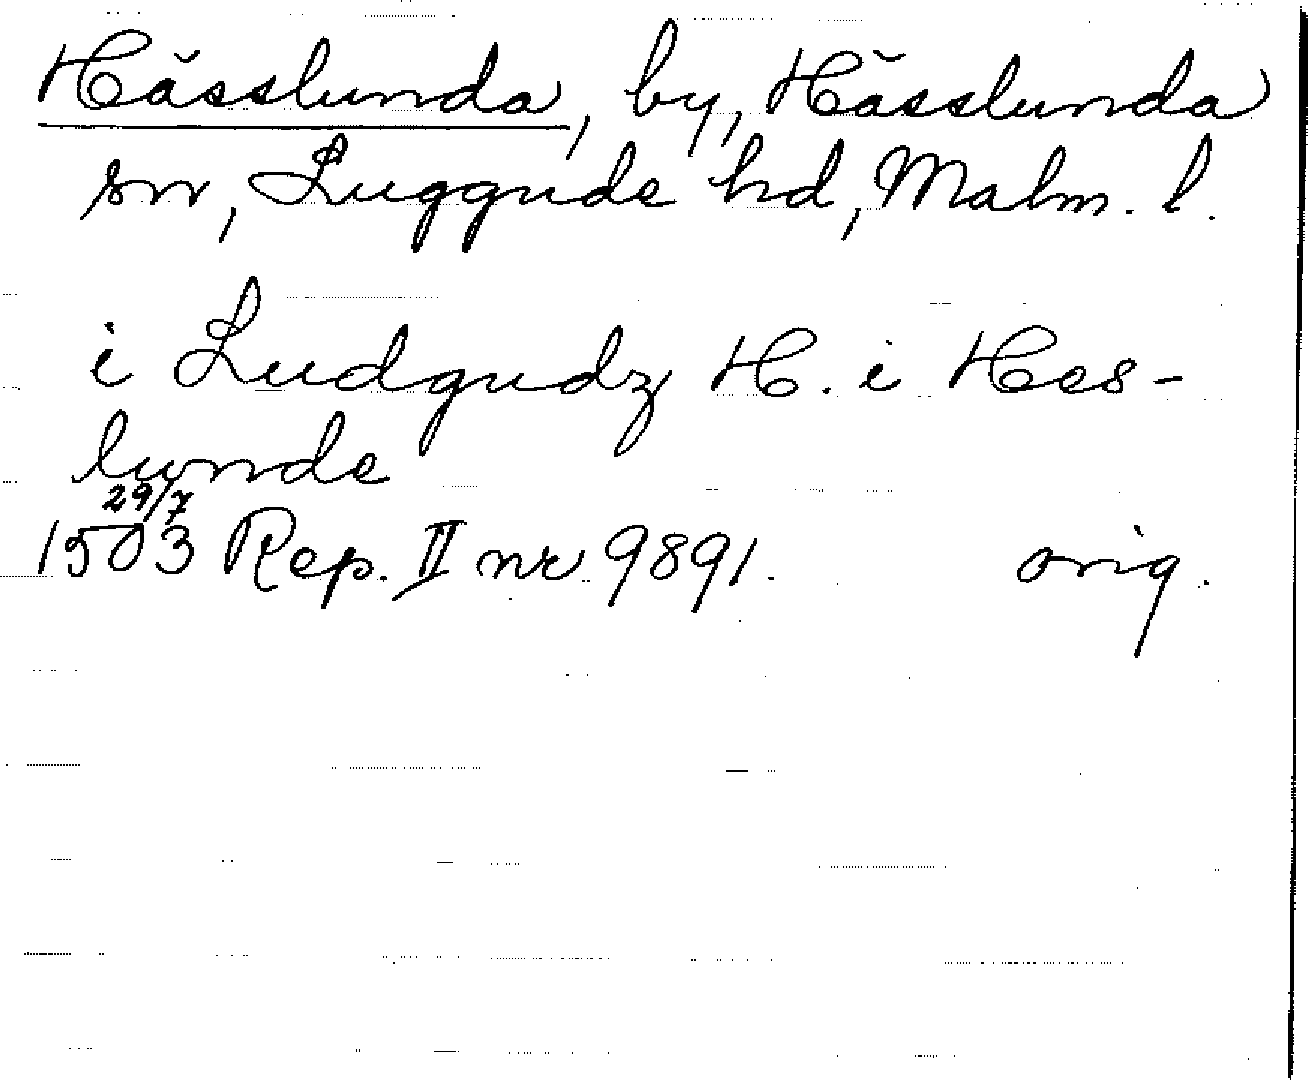 Hässlunda, by, Hässlunda
sn, Luggude hd, Malm. l.
i Ludgudz H. i Hes-
lunde
29/7
1503 Rep. II nr 9891. orig.